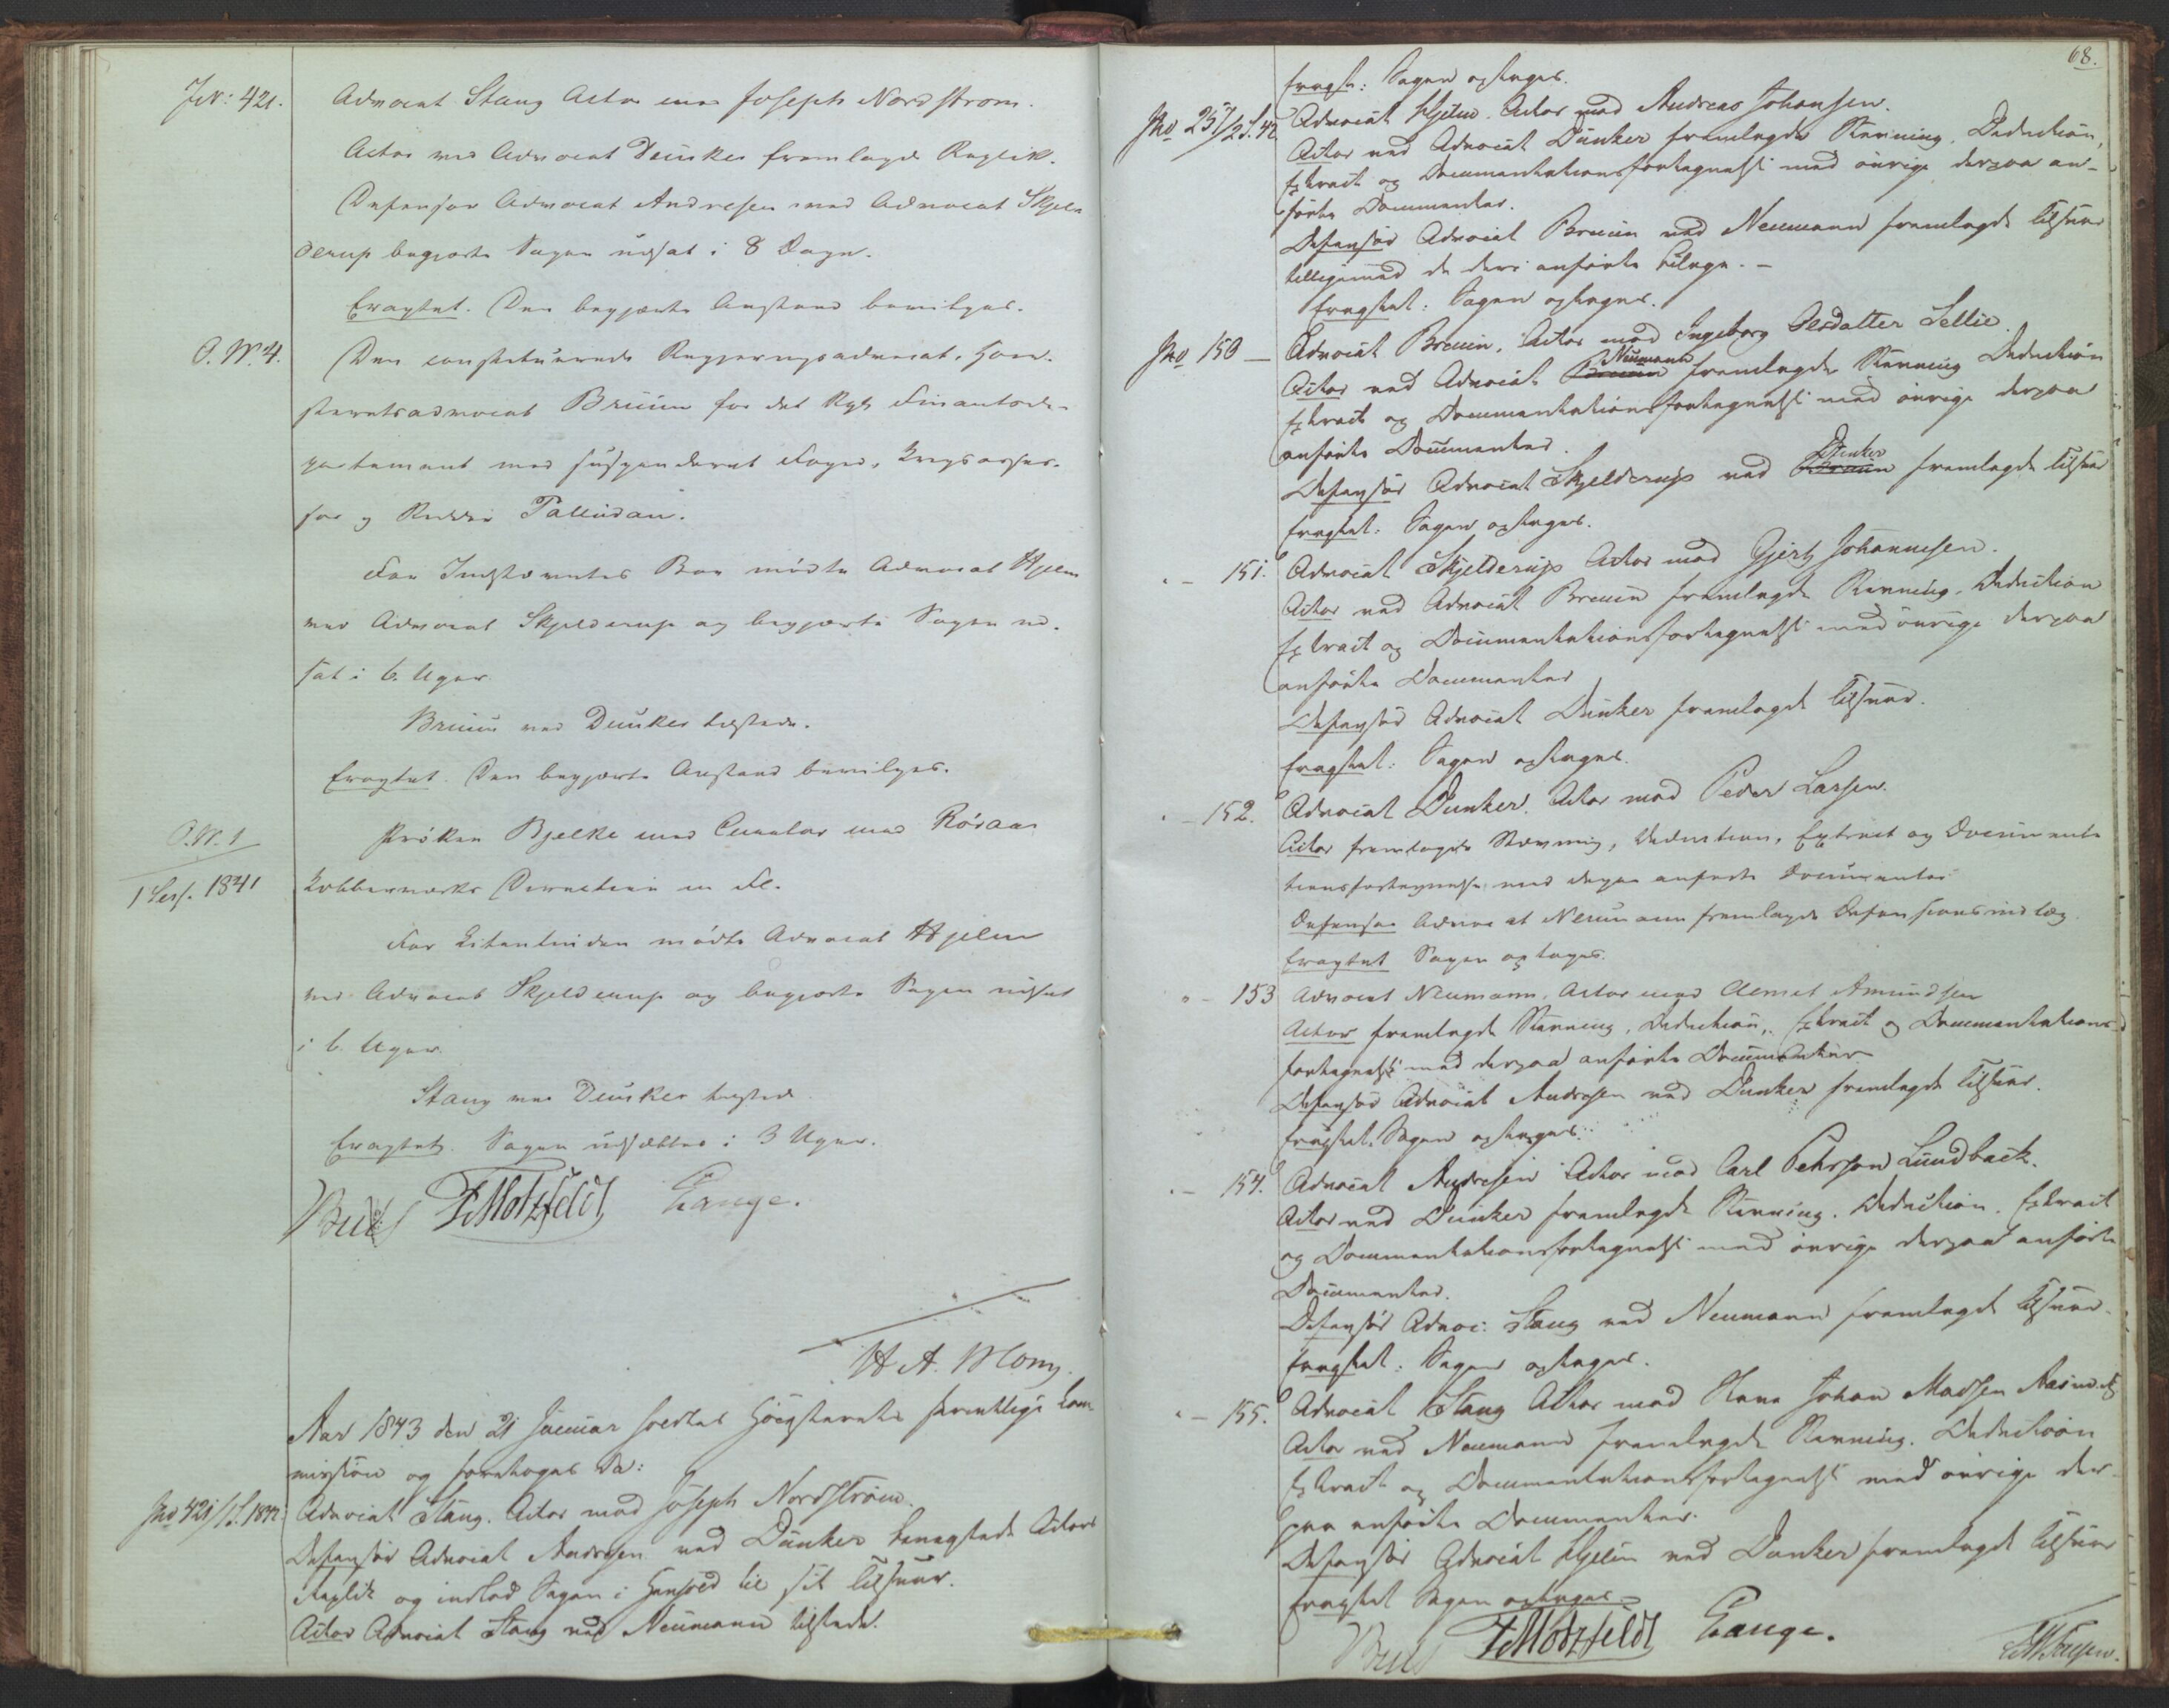 No: 421. Advocat Stang Actor mod Joseph Nordstrøm.
Actor ved Advocat Dunker fremlagde Replik.
Defensor Advocat Andresen ved Advocat Skjel-
derup begjærte Sagen udsat i 8 Dage.
Eragtet. Den begjærte Anstand bevilges.
O. N. 4. Den constituerede Regjeringsadvocat, Høie-
steretsadvocat Bruun for det Kgl. Finantsde-
partement mod suspenderet Foged, Krigsasses-
sor og Ridder Palludan.
For Indstævntes Bo mødte Advocat Hjelm
ved Advocat Skjelderup og begjærte Sagen ud-
sat i 6. Uger.
Bruun ved Dunker tilstede.
Eragtet. Den begjærte Anstand bevilges.
O. N. 1
1 Sess. 1841
Frøken Bjelke med Curator mod Røraas
Kobberværks Direction m. Fl.
For Citantinden mødte Advocat Hjelm
ved Advocat Skjelderup og begjærte Sagen udsat
i 6. Uger.
Stang ved Dunker tilstede.
Eragtet. Sagen udsættes i 3 Uger.
Bull FMotzfeldt Lange.
Aar 1843 den 21 Januar holdtes Høiesterets skriftlige Com-
mission og foretoges da:
No 421/1S. 1842. Advocat Stang. Actor mod Joseph Nordstrøm.
Defensor Advocat Andresen ved Dunker Actors
Replik og indlod Sagen i Henhold til sit Tilsvar.
Actor Advocat Stang ved Neumann tilstede.
68.
Eragt: Sagen optages.
No 257/2S. 42 Advocat Hjelm. Actor mod Andreas Johansen.
Actor ved Advocat Dunker fremlagde Stævning, Deduction,
Extract og Documentationsfortegnelse med øvrige derpaa an-
førte Documenter.
Defensor Advocat Bruun ved Neumann fremlagde Tilsvar
tilligemed de deri anførte Bilage. -
Eragtet: Sagen optages.
No 150 - Advocat Bruun. Actor mod Ingeborg Olsdatter Lellie.
Actor ved Advocat Neumann fremlagde Stævning Deduction
Extract og Documentationsfortegnelse med øvrige derpaa
anførte Documenter.
Defensor Advocat Skjelderup ved Dunker fremlagde Tilsvar
Eragtet: Sagen optages.
" - 151. Advocat Skjelderup Actor mod Gjert Johannesen.
Actor ved Advocat Bruun fremlagde Stævning, Deduction
Extract og Documentationsfortegnelse med øvrige derpaa
anførte Documenter
Defensor Advocat Dunker fremlagde Tilsvar.
Eragtet: Sagen optages.
" - 152. Advocat Dunker. Actor mod Peder Larsen.
Actor fremlagde Stævning, Deduction, Extract og Documenta-
tionsfortegnelse med derpaa anførte Documenter
Defensor Advocat Neumann fremlagde Defensionsindlæg.
Eragtet Sagen optages.
" - 153 Advocat Neumann, Actor mod Clemet Amundsen
Actor fremlagde Stævning, Deduction, Extract og Documentations-
fortegnelse med derpaa anførte Documenter
Defensor Advocat Andresen ved Dunker fremlagde Tilsvar.
Eragtet. Sagen optages.
" - 154. Advocat Andresen Actor mod Carl Pehrson Lundback.
Actor ved Dunker fremlagde Stævning. Deduction. Extract
og Documentationsfortegnelse med øvrige derpaa anførte
Documenter.
Defensor Advoc: Stang ved Neumann fremlagde Tilsvar.
Eragtet: Sagen optages.
" - 155. Advocat Stang Actor mod Hans Johan Madsen
Actor ved Neumann fremlagde Stævning. Deduction
Extract og Documentationsfortegnelse med øvrige der-
paa anførte Documenter.
Defensor Advocat Hjelm ved Dunker fremlagde Tilsvar
Eragtet Sagen optages.
Bull FMotzfeldt Lange.